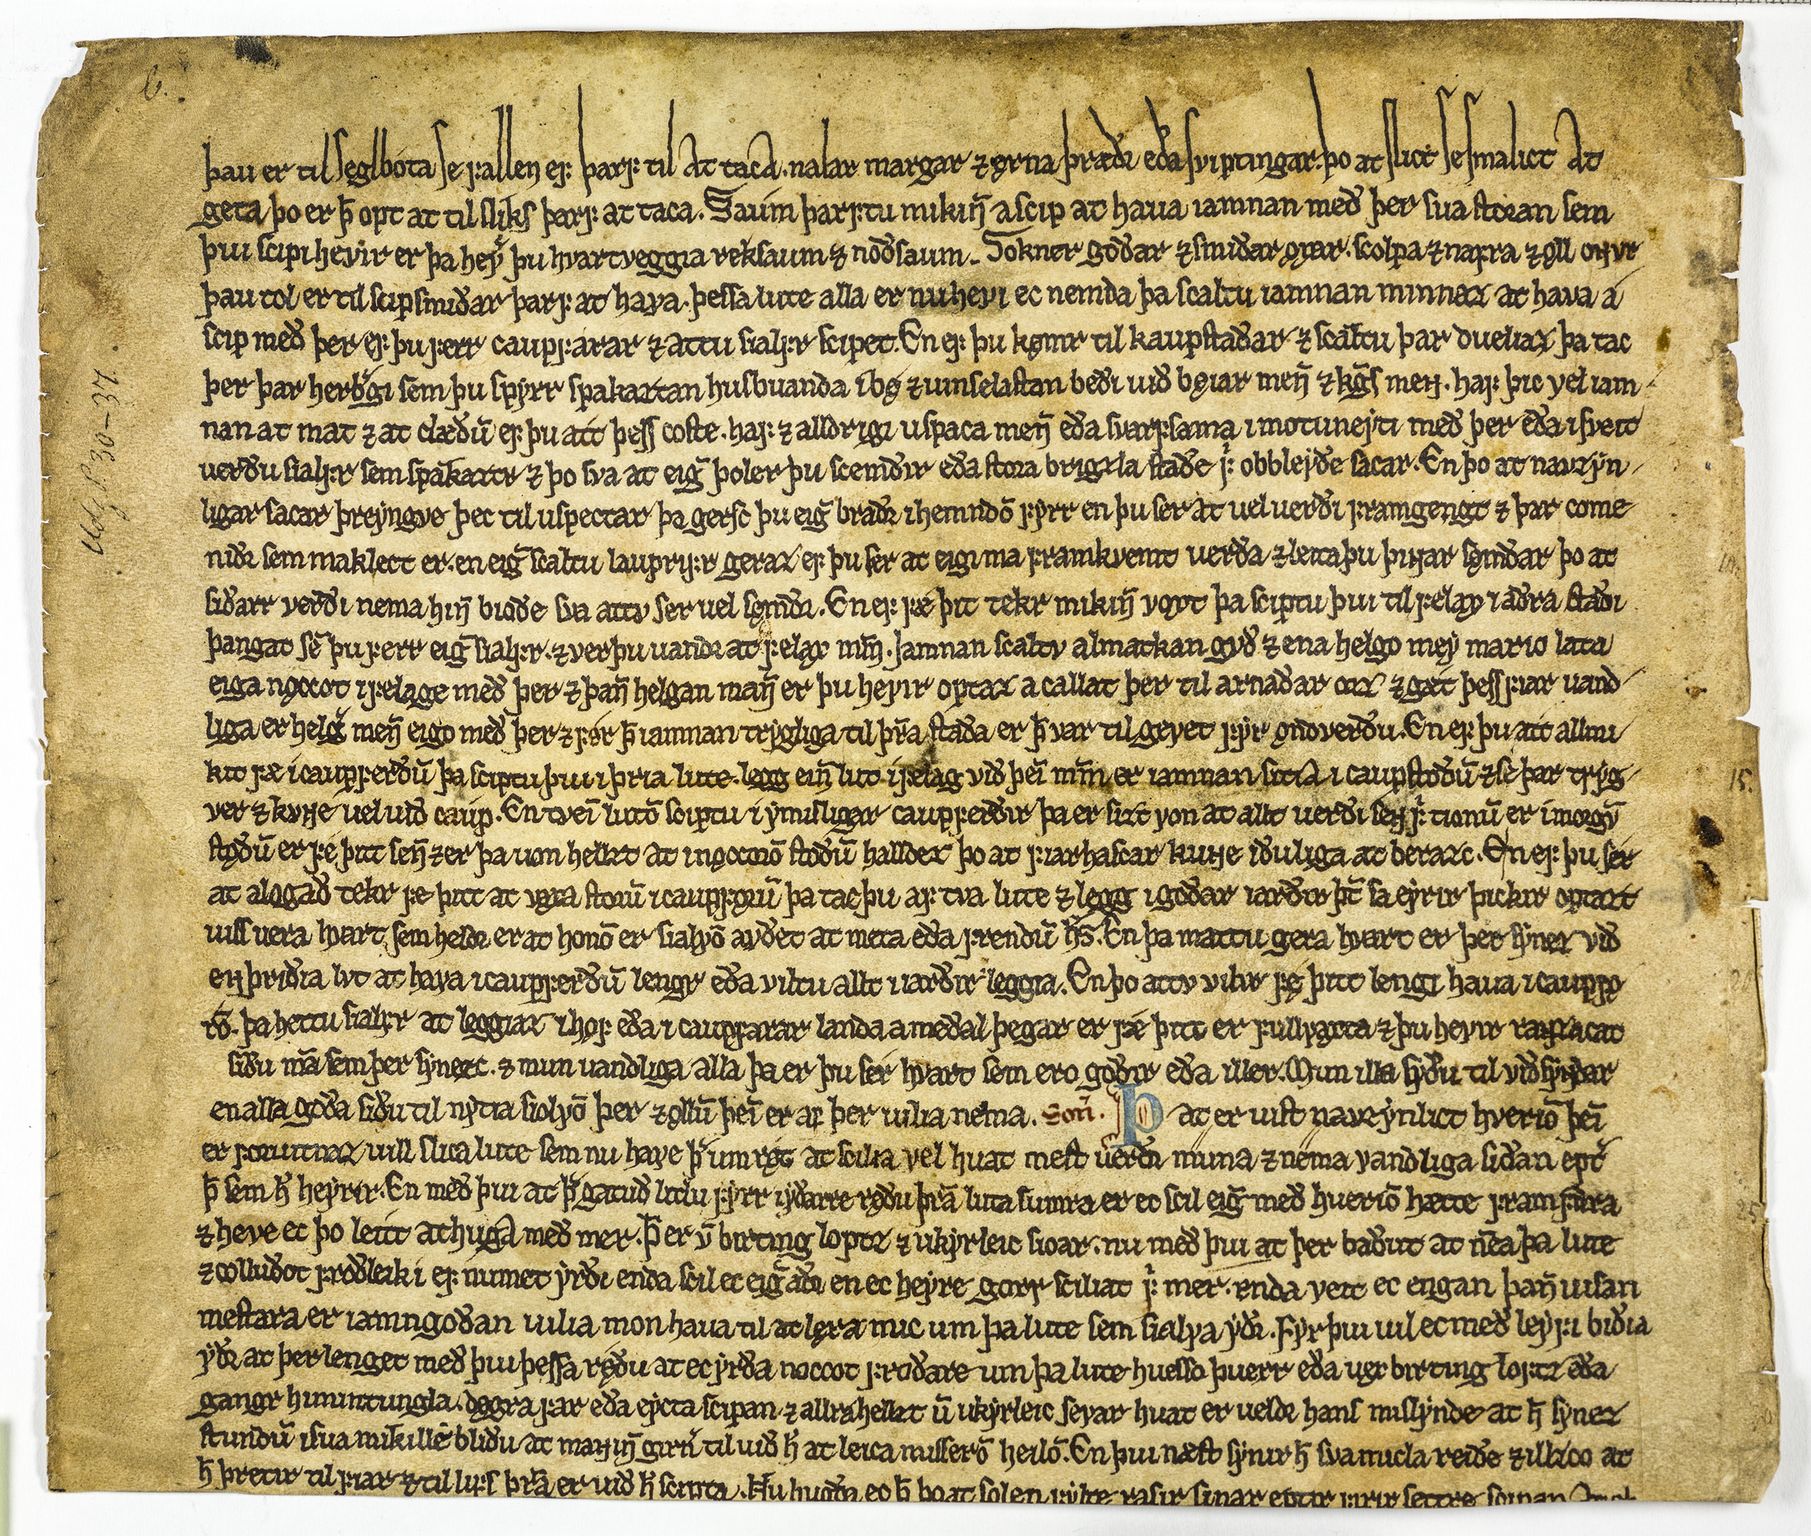 þau er til seglbota se fallen ef þarf til at taca. nalar margar ⁊ ǫrna þræðe eða sviptingar. þo at slict se smalict at
geta þo er þ̄ opt at til sliks þarf at taca. Saum þarftu mikiɴ̄ a scip at haua iamnan með þer sua storan sem
þui scipi hevir er þa hevir þu hvartveggia reksaum ⁊ noðsaum. Sokner goðar ⁊ smiðar ǫxar. scolpa ⁊ nafra ⁊ ǫll ɴnvr
þau tol er til scipsmiðar þarf at hava. þessa lute alla er nu hevi ec nemda þa scaltu iamnan minnaz at hava a
scip með þer ef þu ferr caupfarar ⁊ attu sialfr scipet. En ef þu kǫmr til kaupstaðar ⁊ scaltu þar dueliaz þa tac
þer þar herbergi sem þu spyrr spakaztan husbuanda i bǿ ⁊ uinselastan beði uið bǿiar men̄ ⁊ kǥ̄s meɴ. haf þic vel iam-
nan at mat ⁊ at clæðū ef þu att þess coste. haf ⁊ alldrigi uspaca men̄ eða svarfsama i motuneyti með þer eða i sveit
verðu sialfr sem spakaztr ⁊ þo sva at eig̃ þoler þu scemðir eða stora brigzla staðe f̃ obbleyðe sacar. En þo at navzyn-
ligar sacar þreyngve þec til uspectar þa gersc þu eig̃ braðr i hemndō fyrr en þu ser at uel uerði framgengt ⁊ þar come
niðr sem maklect er. en eig̃ scaltu lauprifr geraz ef þu ser at eigi ma framkvemt verða ⁊ leita þu þiɴar sǫmðar þo at
siðarr verði nema hin̄ bioðe sva attv ser uel sǫmði. En ef fe þit tekr mikin̄ voxt þa sciptu þui til felax i aðra staði
þangat sē þu ferr eig̃ sialfr. ⁊ ver þu uandr at felax mm̄. Jamnan scaltv almatkan gvð ⁊ ena helgo mey mario lata
eiga nǫccot i felage með þer ⁊ þan̄ helgan man̄ er þu hevir optaz a callat þer til arnaðar orz ⁊ gæt þess fiar uand-
liga er helg̃ men̄ eigo með þer ⁊ for þ̄ iamnan trygliga til þr̄a staða er þ̄ var til gevet fyr ondverðu. En ef þu att allmi-
kit fæ i caupferðū þa sciptu þui i þria lute. legg ein̄ lut i felag við þeī mm̄ er iamnan sitia i caupstoðū ⁊ se þar tryg-
ver ⁊ kuɴe uel uið caup. En tveī lutō sciptu i ymisligar caupferðir þa er sizt von at allt uerði seɴ f̃ tionū er i morgū
stǫðū er fe þitt sen̄ ⁊ er þa uon hellzt at i nǫccorō stoðū halldez þo at fiarhascar kuɴe iðuliga at berazc. En ef þu ser
at alogað tekr fe þitt at vǫxa storū i caupfǫrū þa tac þu af tva lute ⁊ legg i goðar iarðir þt̄ sa eyrir þickir optazt
uiss uera hvart sem heldr er at honō er sialvō avðet at meta eða frendū hs̄. En þa mattu gera hvart er þer synez við
eɴ þriðia lvt at hava i caupferðū lengr eða viltu allt i iarðir leggia. En þo attv vilir fe þitt lengi haua i caupfo
rō. þa hettu sialfr at leggiaz i hof eða i caupfarar landa a meðal þegar er fæ þitt er fullvaxta ⁊ þu hevir raɴsacat
siðu m̄a sem þer synezc. ⁊ mun uandliga alla þa er þu ser hvart sem ero goðir eða iller. Mun illa syðu til viðsynðar
en alla goða siðu til nytia siolvō þer ⁊ ollū þeī er af þer uilia nema. Son̄. Þ at er uist navzynlict hveriō þeī
er forvitnaz uill slica lute sem nu have þ̄ um rǫt at scilia vel huat mest uerðr muna ⁊ nema vandliga siðan epť
þ̄ sem h̄ heyrir. En með þui at þ̄ gatuð litlu fyrr i yðarre rǫðu þr̄a luta sumra er ec scil eig̃ með hueriō hætte fram fara
⁊ heve ec þo leitt at huga með mer. þ̄ er ū birting loptz ⁊ ukyrleic sioar. nu með þui at þer baðut at nēa þa lute
⁊ colluðot froðleik i ef numet yrði enda scil ec eig̃ aðr en ec heyre gorr sciliat f̃ mer. enda veit ec engan þan̄ uisan
mestara er iamngoðan uilia mon haua til at lǫra mic um þa lute sem sialva yðr. Fyr þui uil ec með leyfi biðia
yðr at þer lenget með þui þessa rǫðu at ec yrða noccot froðare um þa lute huesso þuerr eða uex birting loptz eða
gangr himintungla. dǫgra far eða eycta scipan. ⁊ allra hellzt ū ukyrleic sevar huat er uelde hans mislynde at h̄ synez
stundū i sua mikille bliðu at maɴin̄ girn̄ til uið h̄ at leica misserō heilō. En þui næst synir h̄ sva micla reiðe ⁊ illzco at
h̄ þretir til fiar ⁊ til lifs þr̄a er uið h̄ scipta. Nu hugða ec þ̄ þo at solen fylte rasir sinar eptir